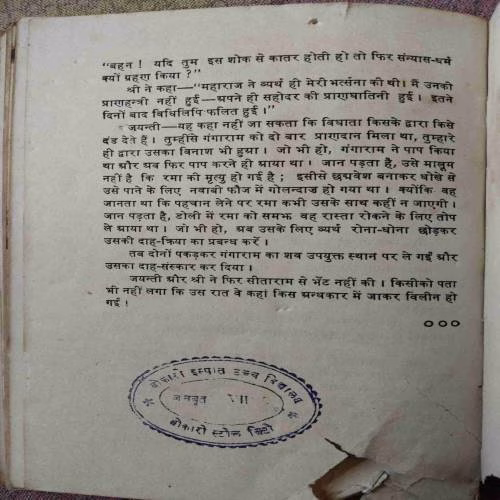 "बहन ! यदि तुम इस शोक से कातर होती हो तो फिर संन्यास-धर्म
क्यों ग्रहण किया ?"
श्री ने कहा—"महाराज ने व्यर्थ ही मेरी भर्त्सना की थी। मैं उनकी
प्राणहन्त्री नहीं हुई—अपने ही सहोदर की प्राणघातिनी हुई। इतने
दिनों बाद विधिलिपि फलित हुई।"
जयन्ती—यह कहा नहीं जा सकता कि विधाता किसके द्वारा किसे
दंड देते हैं। तुम्हींसे गंगाराम को दो बार प्राणदान मिला था, तुम्हारे
ही द्वारा उसका विनाश भी हुआ। जो भी हो, गंगाराम ने पाप किया
था और अब फिर पाप करने ही आया था। जान पड़ता है, उसे मालूम
नहीं है कि रमा की मृत्यु हो गई है ; इसीसे छद्मवेश बनाकर धोखे से
उसे पाने के लिए नवाबी फौज में गोलन्दाज़ हो गया था। क्योंकि वह
जानता था कि पहचान लेने पर रमा कभी उसके साथ कहीं न जाएगी।
जान पड़ता है, डोली में रमा को समझ वह रास्ता रोकने के लिए तोप
ले आया था। जो भी हो, अब उसके लिए व्यर्थ रोना-धोना छोड़कर
उसकी दाह-क्रिया का प्रबन्ध करें।
तब दोनों पकड़कर गंगाराम का शव उपयुक्त स्थान पर ले गईं और
उसका दाह-संस्कार कर दिया।
जयन्ती और श्री ने फिर सीताराम से भेंट नहीं की। किसीको पता
भी नहीं लगा कि उस रात वे कहां किस अन्धकार में जाकर विलीन हो
गईं !
०००
बोकारो इस्पात उच्च विद्यालय
बोकारो स्टील सिटी